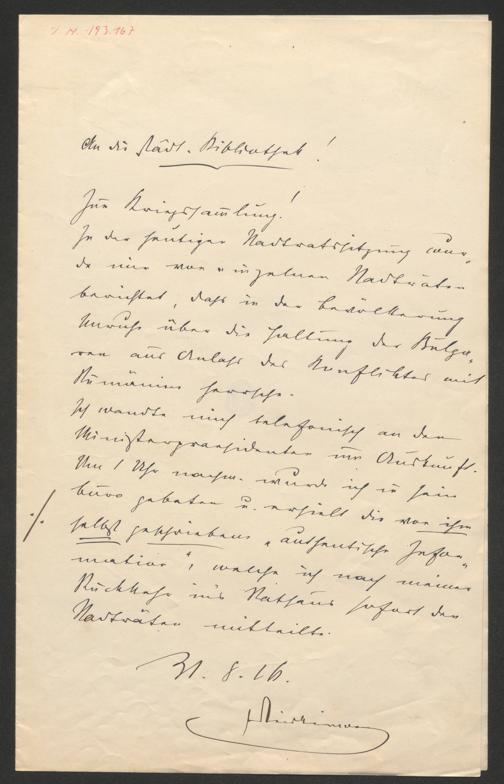 I. N. 193.167
An die städt. Bibliothek!
Zur Kriegssammlung!
In der heutigen Stadtratssitzung wur-
de mir von einzelnen Stadträten
berichtet, daß in der Bevölkerung
Unruhe über die Haltung der Bulga-
ren aus Anlaß des Konfliktes mit
Rumänien herrsche.
Ich wandte mich telefonisch an den
Ministerpraesidenten um Auskunft.
Um 1 Uhr nachm. wurde ich in sein
büro gebeten u. erhielt die von ihm
./. selbst geschriebene „authentische Infor-
mation", welche ich nach meiner
Rückkehr ins Rathaus sofort den
Stadträten mitteilte.
31. 8. 16.